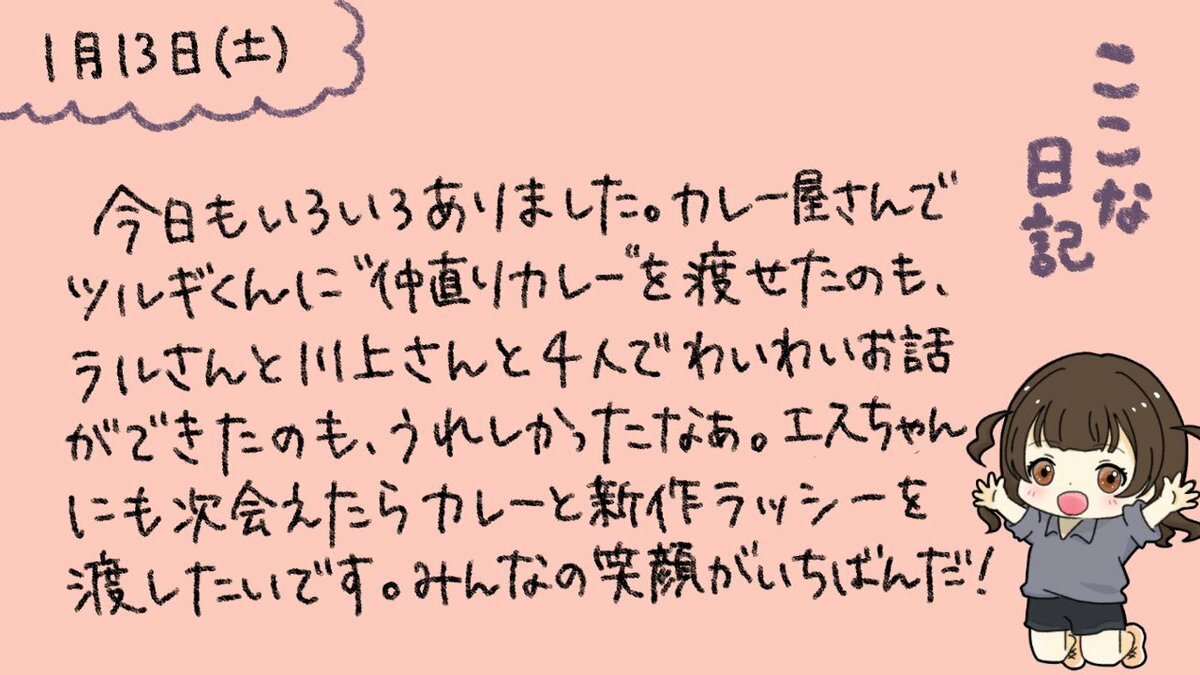 1月13日(土)
ここな
日記
今日もいろいろありました。カレー屋さんで
ツルギくんに"仲直りカレー"を渡せたのも、
ラルさんと川上さんと4人でわいわいお話
ができたのも、うれしかったなぁ。エスちゃん
にも次会えたらカレーと新作ラッシーを
渡したいです。みんなの笑顔がいちばんだ!